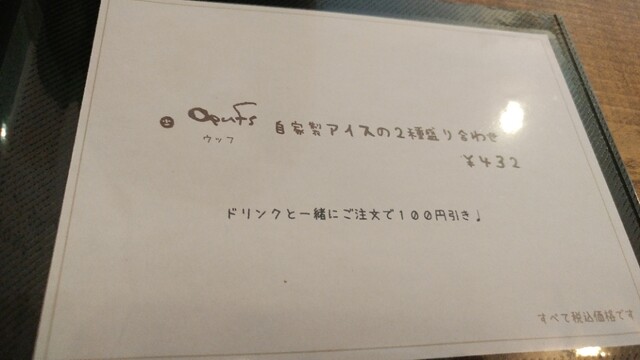 Oeufs 自家製アイスの2種盛り合わせ
ウッフ
¥432
ドリンクと一緒にご注文で100円引き♩
すべて税込価格です